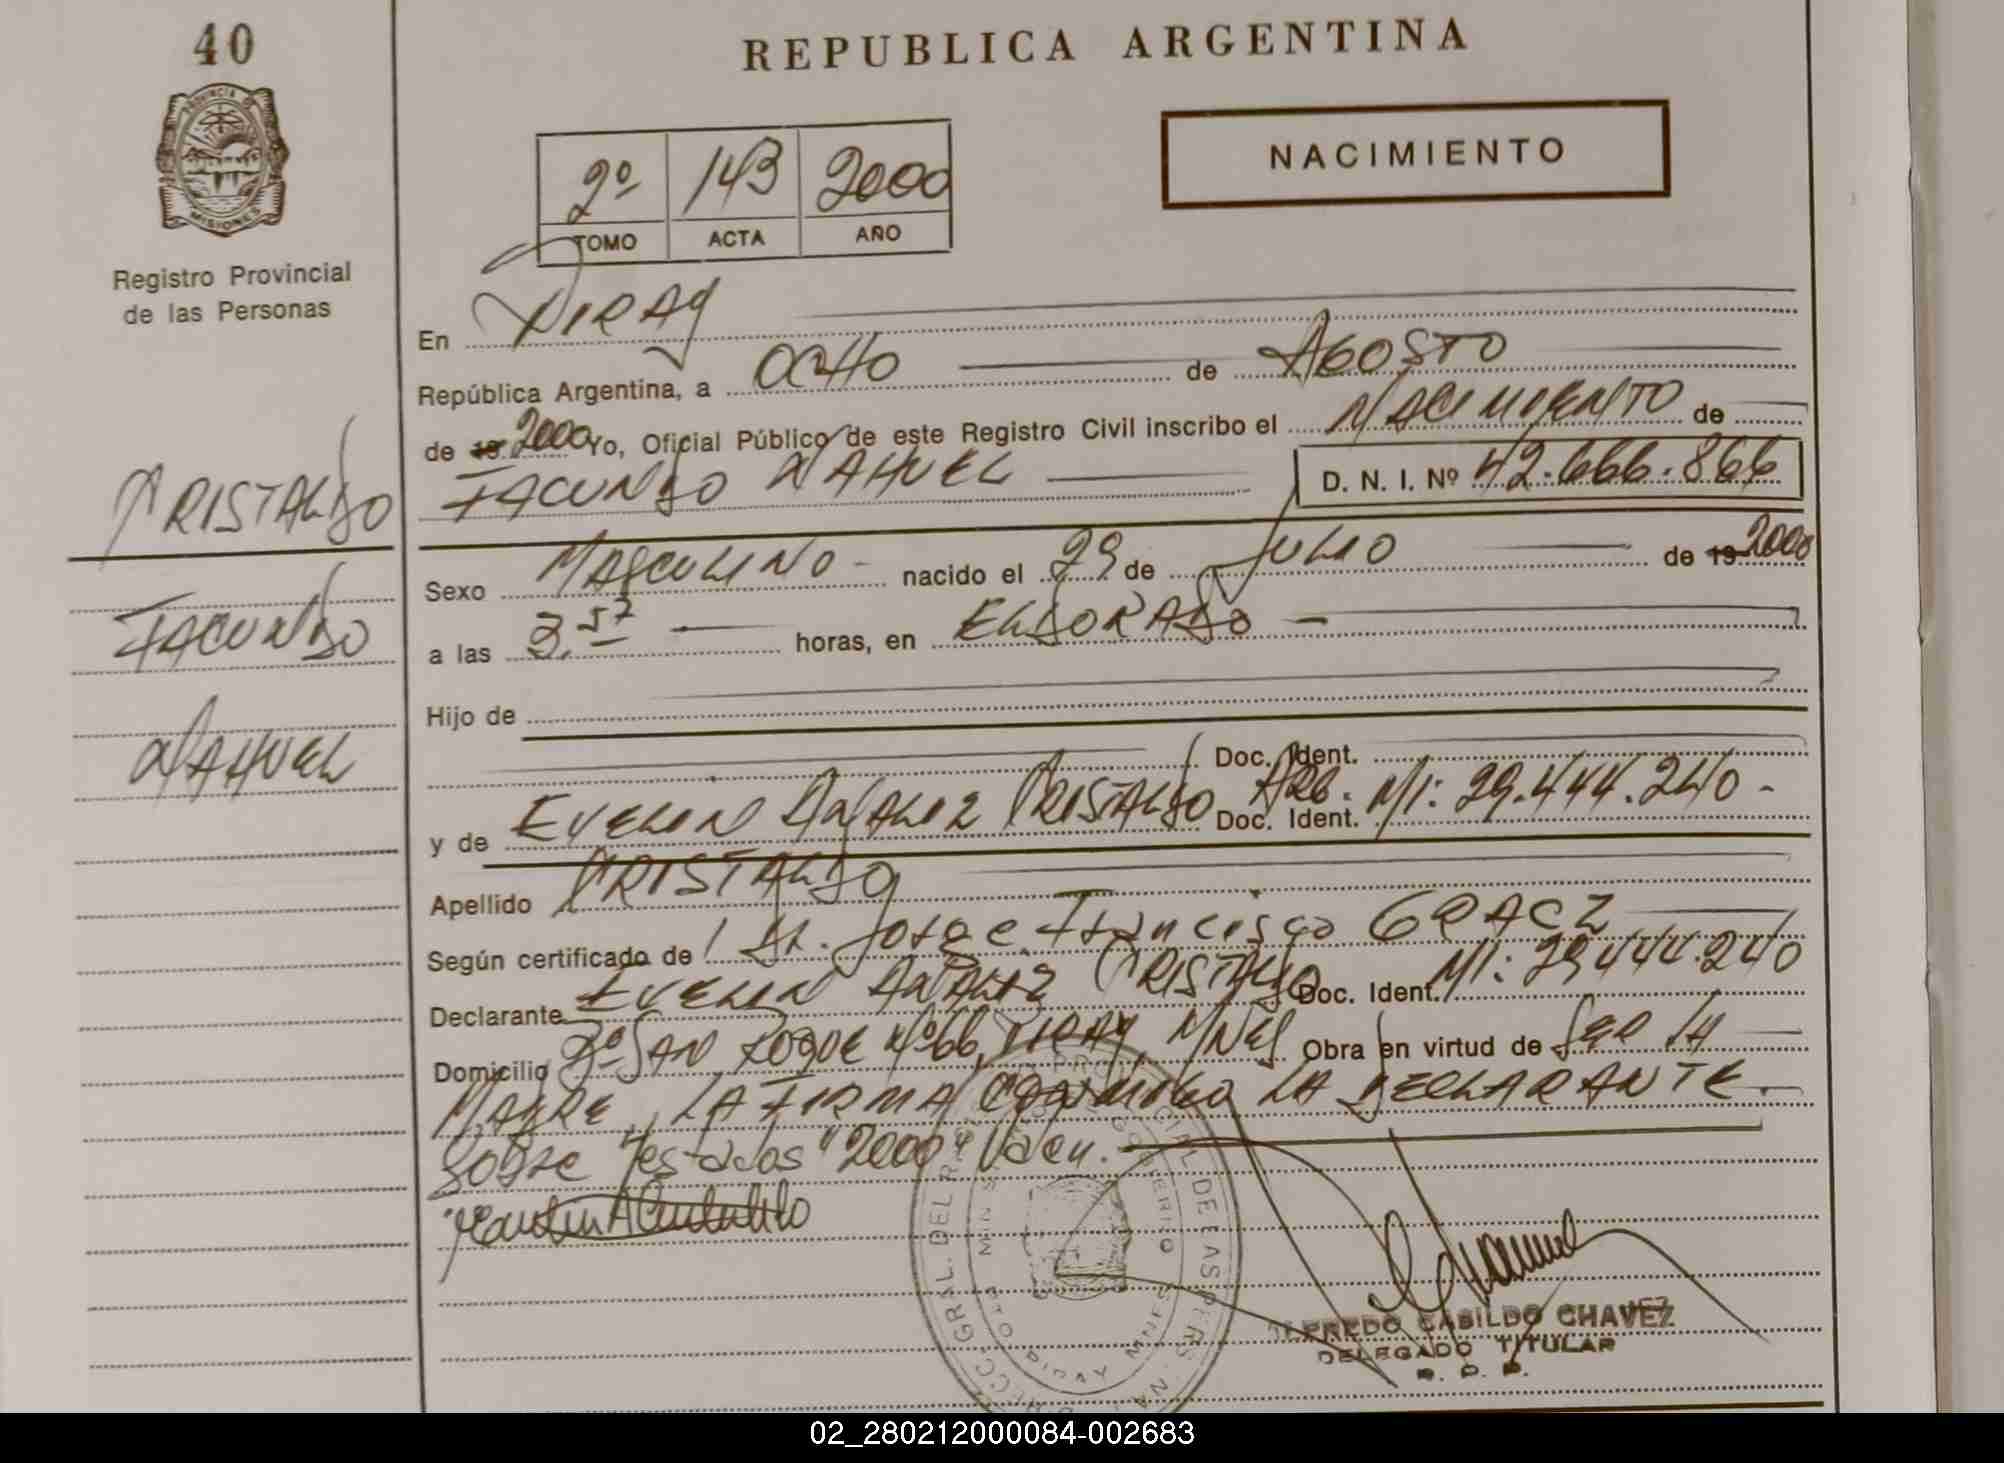 40
REPUBLICA ARGENTINA
PROVINCIA DE
MISIONES
Registro Provincial
de las Personas
NACIMIENTO
2º 143 2000
TOMO ACTA AÑO
En PIRAY
República Argentina, a OCHO de AGOSTO
de 19 2000 Yo, Oficial Público de este Registro Civil inscribo el NACIMIENTO de
FACUNDO NAHUEL D. N. I. Nº 42.666.866
CRISTALDO
FACUNDO
NAHUEL
Sexo MASCULINO - nacido el 29 de JULIO de 19 2000
a las 3,57 horas, en ELDORADO
Hijo de
Doc. Ident.
y de EVELIN ANALIZ CRISTALDO Doc. Ident. ARG. MI: 29.444.240-
Apellido CRISTALDO
Según certificado de Dr. Jorge Francisco GRACZ
Declarante EVELIN ANALIZ CRISTALDO Doc. Ident. MI: 29.444.240
Domicilio Bº SAN ROQUE Nº 66, PIRAY, MNES Obra en virtud de Ser LA
MADRE, LA FIRMA CONMIGO LA DECLARANTE.
Sobre Testados "2000" Valen.
ALFREDO CASILDO CHAVEZ
DELEGADO TITULAR
R. P. P.
02_280212000084-002683